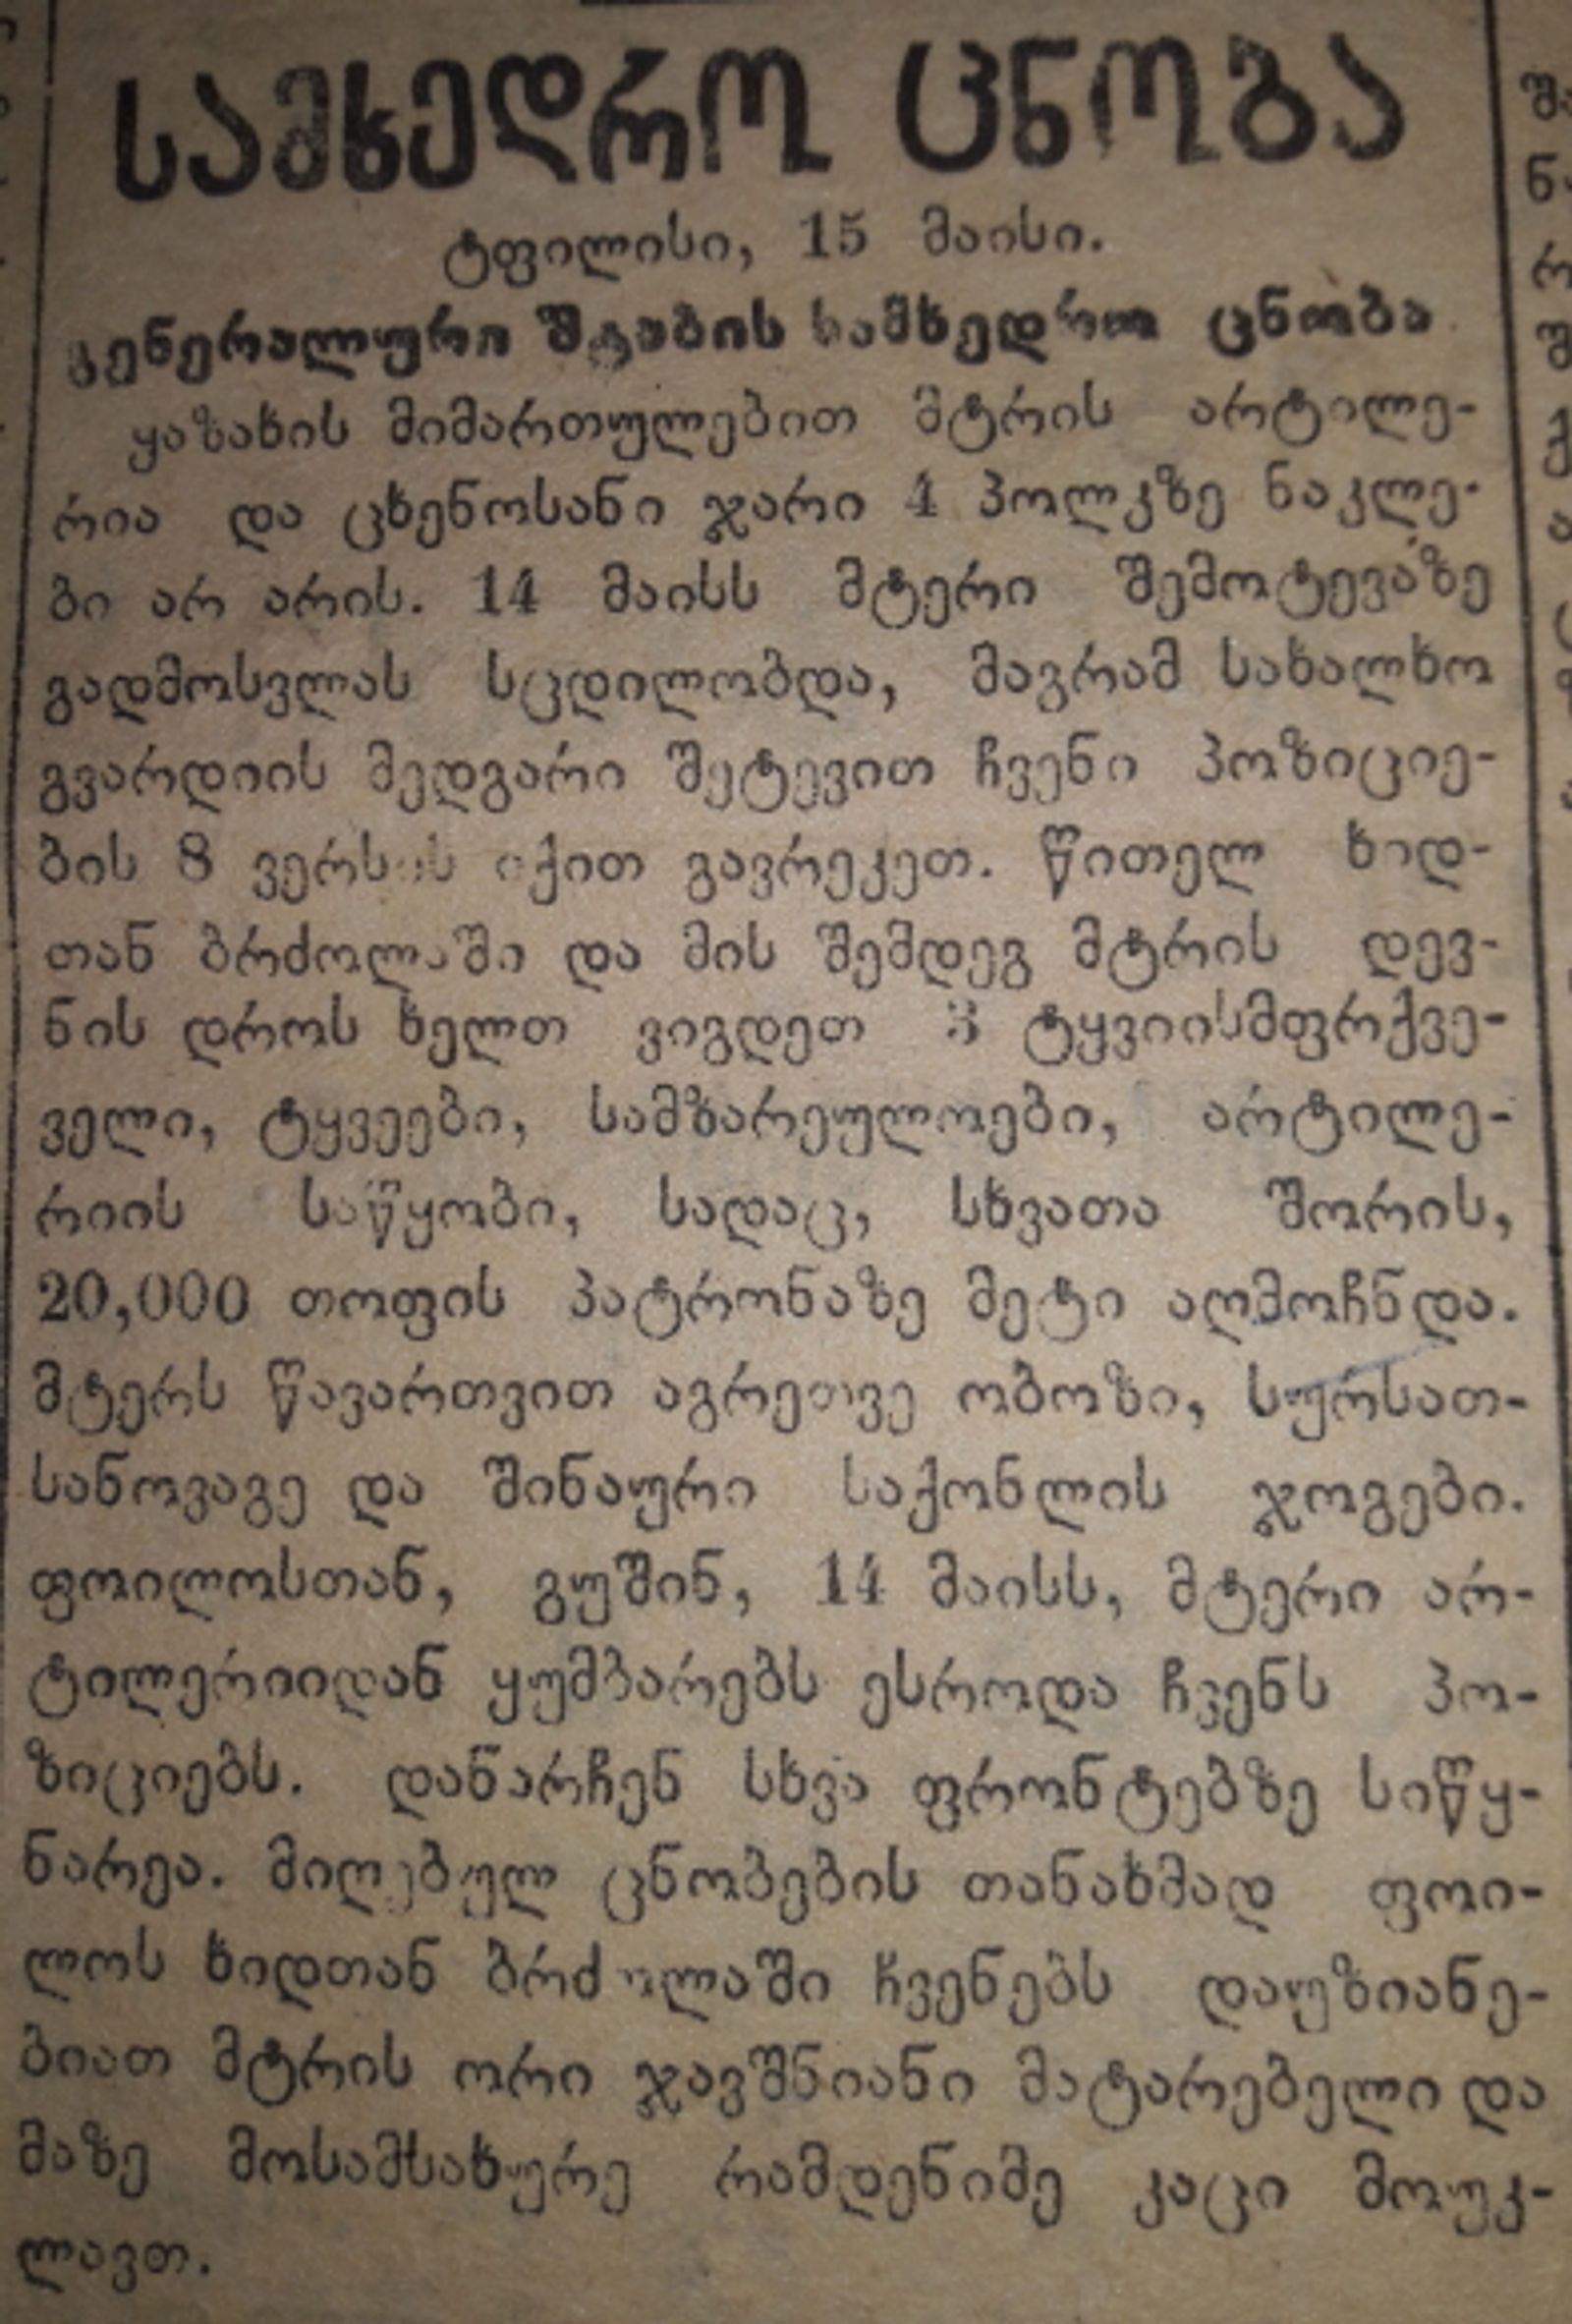 სამხედრო ცნობა
ტფილისი, 15 მაისი.
გენერალური შტაბის სამხედრო ცნობა
ყაზახის მიმართულებით მტრის არტილე-
რია და ცხენოსანი ჯარი 4 პოლკზე ნაკლე-
ბი არ არის. 14 მაისს მტერი შემოტევაზე
გადმოსვლას სცდილობდა, მაგრამ სახალხო
გვარდიის მედგარი შეტევით ჩვენი პოზიციე-
ბის 8 ვერსის იქით გავრეკეთ. წითელ ხიდ-
თან ბრძოლაში და მის შემდეგ მტრის დევ-
ნის დროს ხელთ ვიგდეთ 3 ტყვიისმფრქვე-
ველი, ტყვეები, სამზარეულოები, არტილე-
რიის საწყობი, სადაც, სხვათა შორის,
20,000 თოფის პატრონაზე მეტი აღმოჩნდა.
მტერს წავართვით აგრეთვე ობოზი, სურსათ-
სანოვაგე და შინაური საქონლის ჯოგები.
ფოილოსთან, გუშინ, 14 მაისს, მტერი არ-
ტილერიიდან ყუმბარებს ესროდა ჩვენს პო-
ზიციებს. დანარჩენ სხვა ფრონტებზე სიწყ-
ნარეა. მიღებულ ცნობების თანახმად ფოი-
ლოს ხიდთან ბრძოლაში ჩვენებს დაუზიანე-
ბიათ მტრის ორი ჯავშნიანი მატარებელი და
მაზე მოსამსახურე რამდენიმე კაცი მოუკ-
ლავთ.